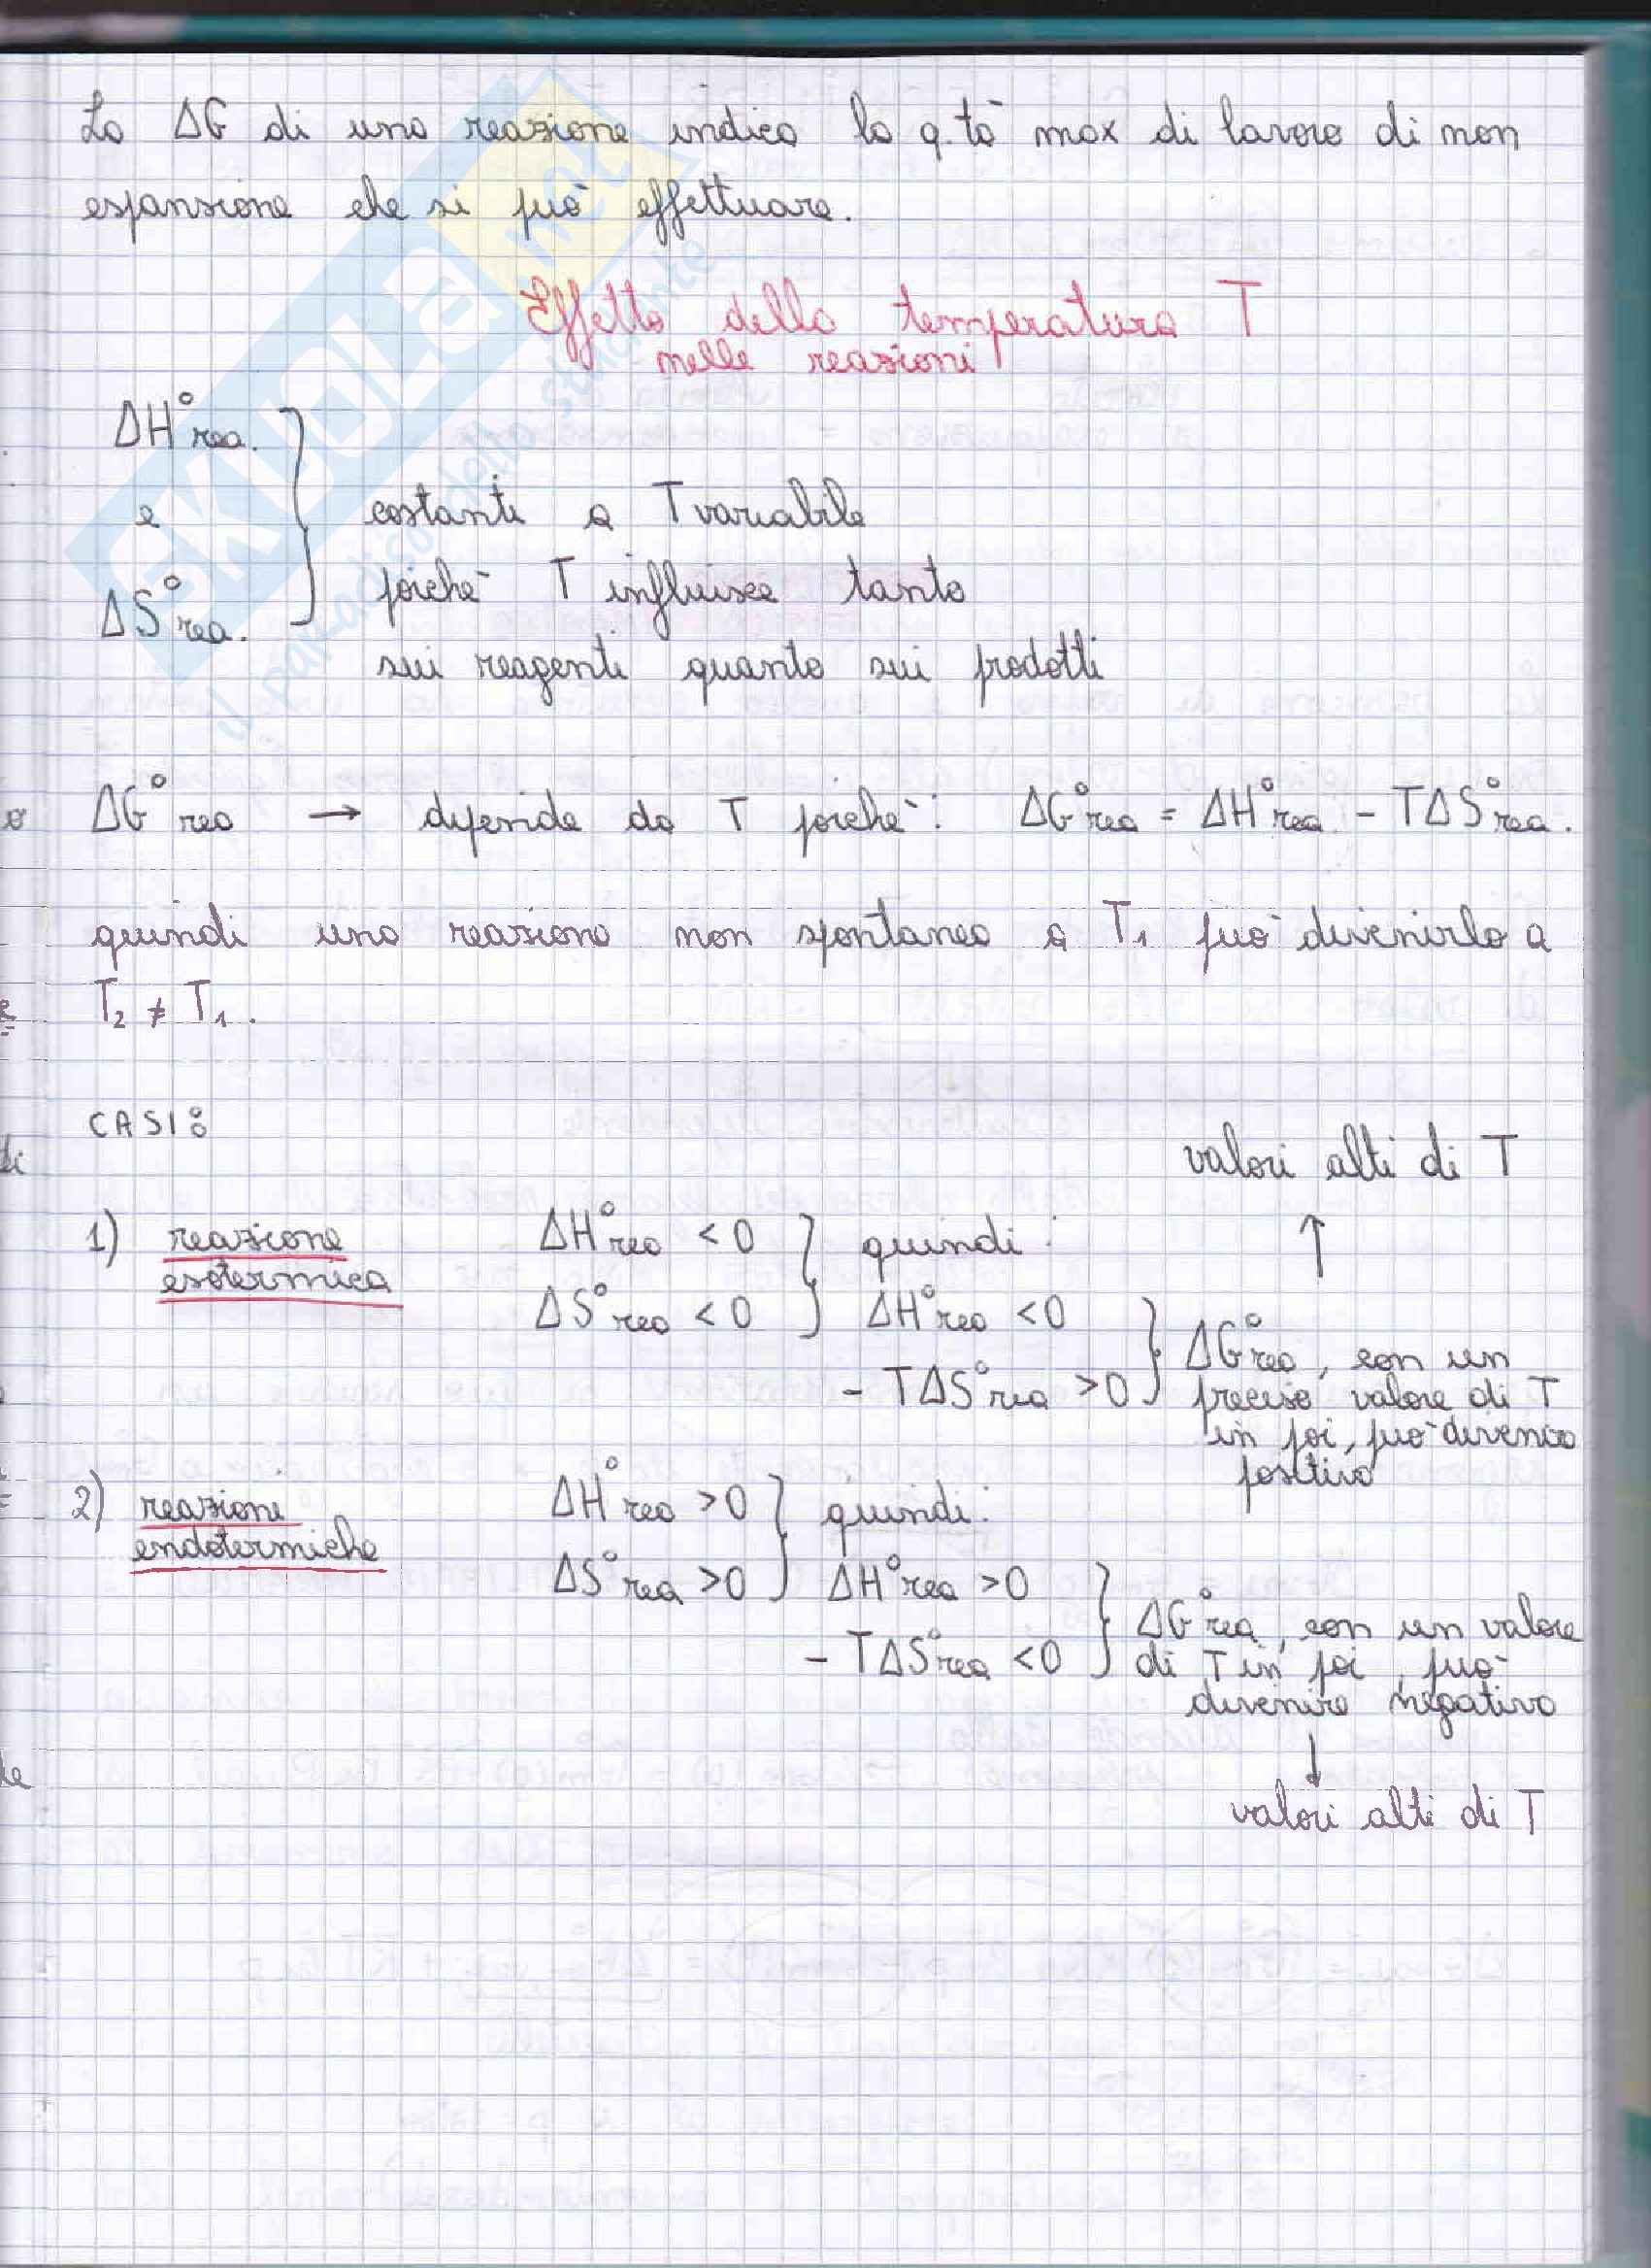 La ΔG di una reazione indica la q.tà max di lavoro di non
espansione che si può effettuare.
Effetto della temperatura T
nelle reazioni
ΔH°rea.
e
ΔS°rea.
costanti a T variabile
poiché T influisce tanto
sui reagenti quanto sui prodotti
ΔG°rea → dipende da T poiché: ΔG°rea = ΔH°rea - TΔS°rea.
quindi una reazione non spontanea a T₁ può divenirlo a
T₂ ≠ T₁.
CASI:
valori alti di T
↑
1) reazione
esotermica
ΔH°rea < 0
ΔS°rea < 0
quindi:
ΔH°rea < 0
- TΔS°rea > 0
ΔG°rea, con un
preciso valore di T
in poi, può divenire
positivo
2) reazioni
endotermiche
ΔH°rea > 0
ΔS°rea > 0
quindi:
ΔH°rea > 0
- TΔS°rea < 0
ΔG°rea, con un valore
di T in poi, può
divenire negativo
↓
valori alti di T
SKUOLA.net
il paradiso dello studente